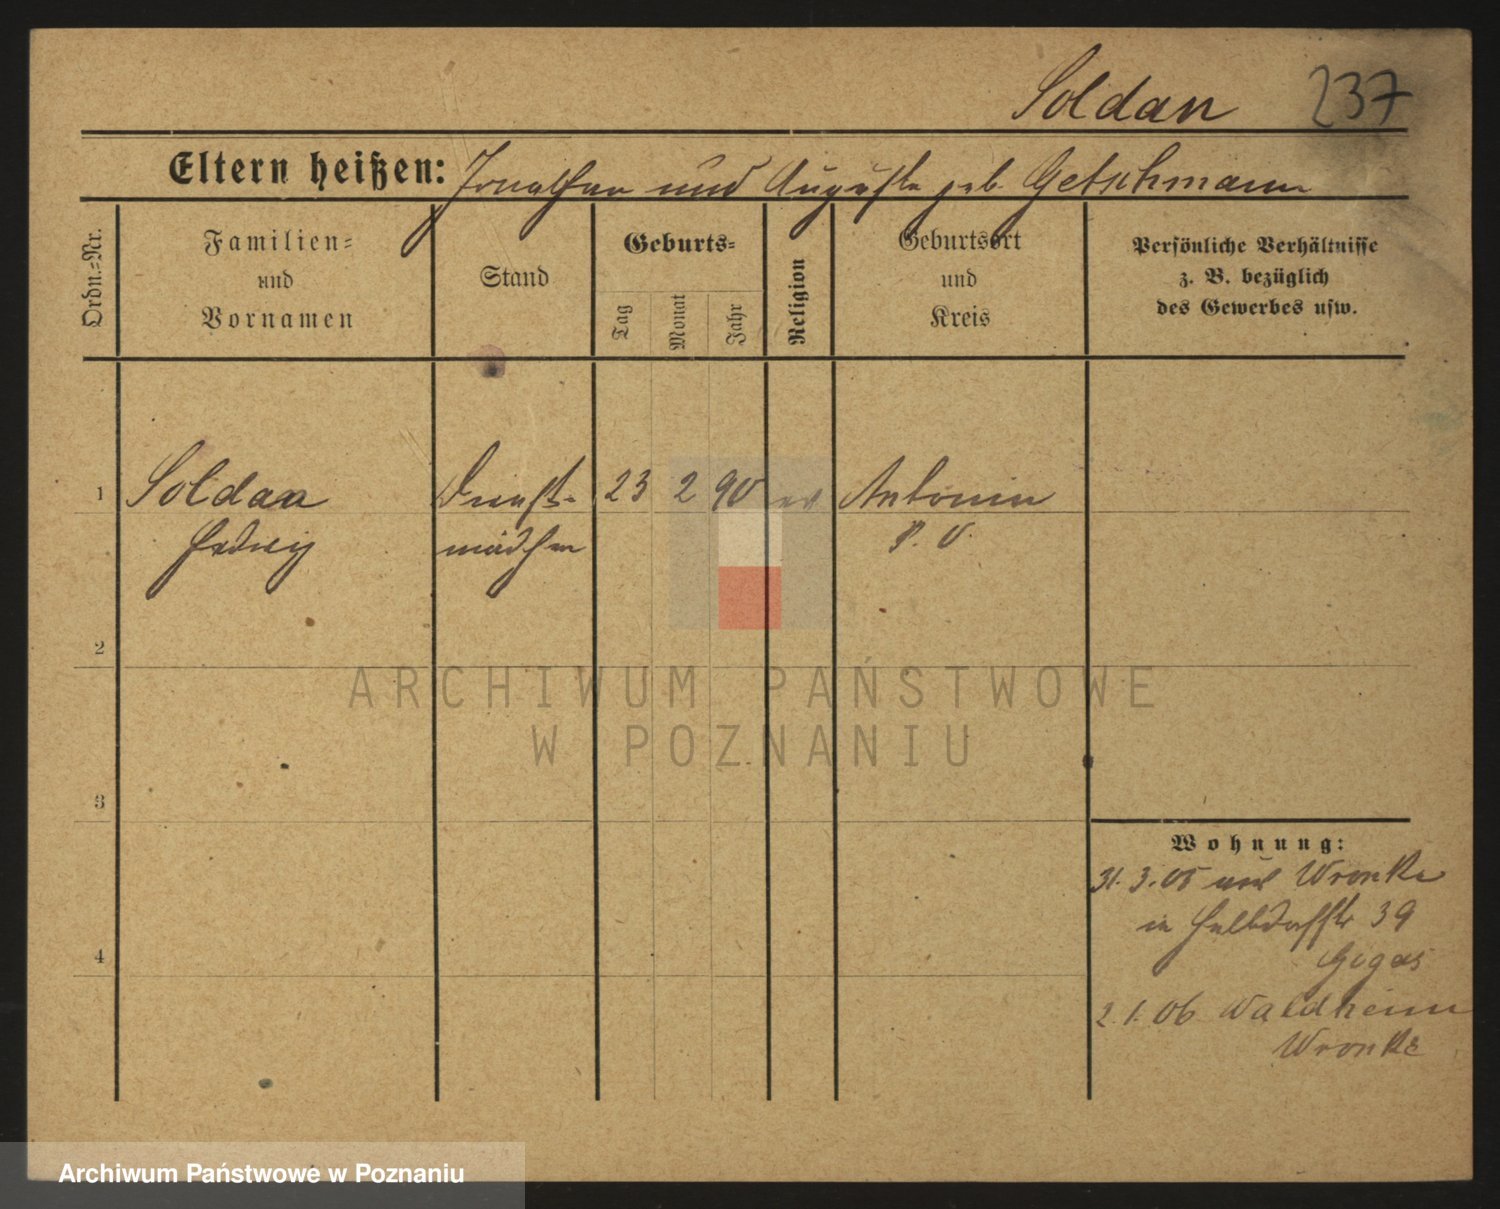 Soldan 237
Eltern heißen: Jonathan und Auguste geb. Getschmann
Ordn.=Nr.
Familien=
und
Vornamen
Stand
Geburts=
Tag
Monat
Jahr
Religion
Geburtsort
und
Kreis
Persönliche Verhältnisse
z. B. bezüglich
des Gewerbes usw.
1 Soldan Dienst- 23 2 90 ev Antonin
Hedwig mädchen P. O.
2
3
4
Wohnung:
31. 3. 05 aus Wronke
in 39
Gogas
2. 1. 06 Waldheim
Wronke
ARCHIWUM PAŃSTWOWE
W POZNANIU
Archiwum Państwowe w Poznaniu